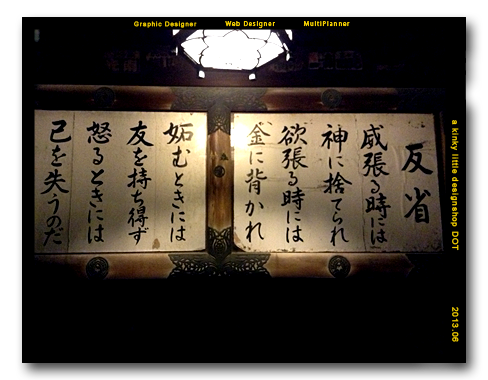 Graphic Designer Web Designer MultiPlanner
反省
威張る時には
神に捨てられ
欲張る時には
金に背かれ
妬むときには
友を持ち得ず
怒るときには
己を失うのだ
a kinky little designshop DOT 2013.06